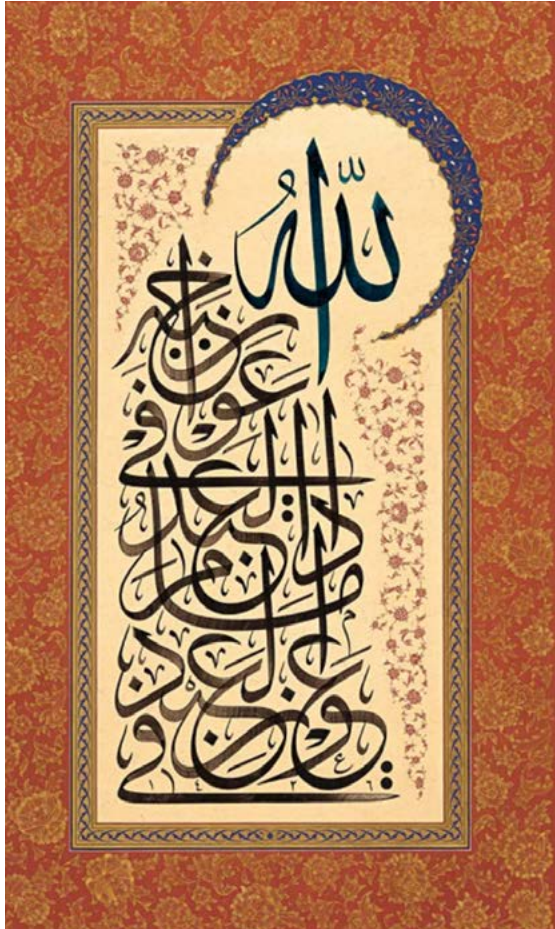 الله
في عون العبد
ما دام العبد
في عون
اخيه
١٤٢٦